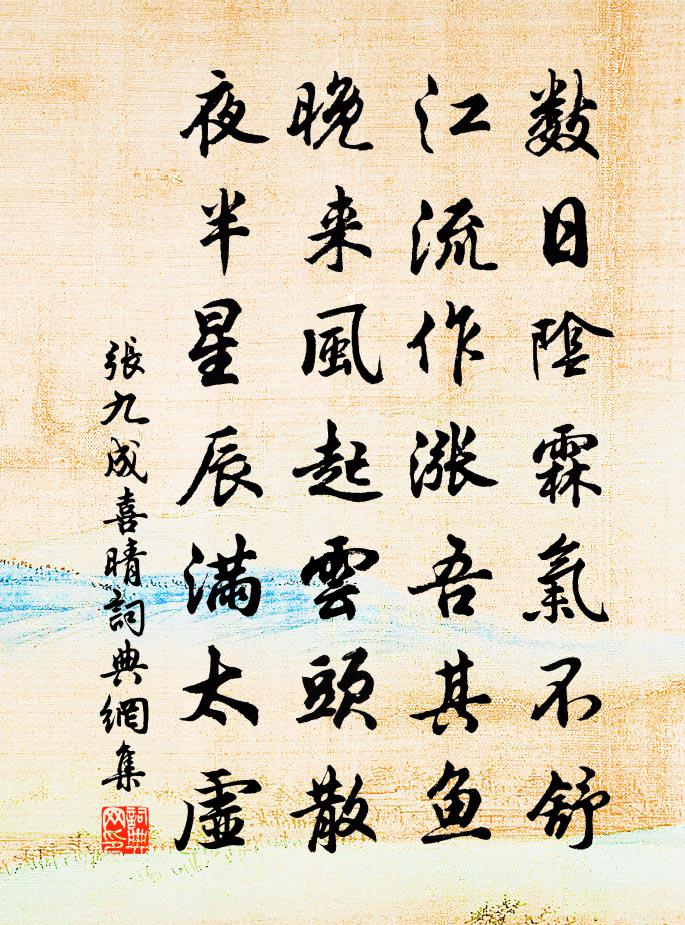 數日陰霖氣不舒
江流作漲吾其鱼
晚来風起雲頭散
夜半星辰滿太虛
張九成喜晴詞典網集
詞典
网印